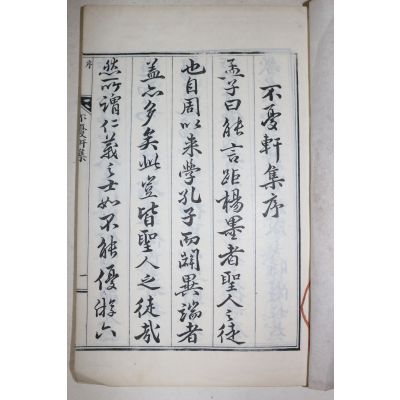 不憂軒集序
孟子曰能言距楊墨者聖人之徒
也自周以来學孔子而闢異端者
盖亦多矣此豈皆聖人之徒哉
然所謂仁義之士如不能優游六
序
不憂軒集
一